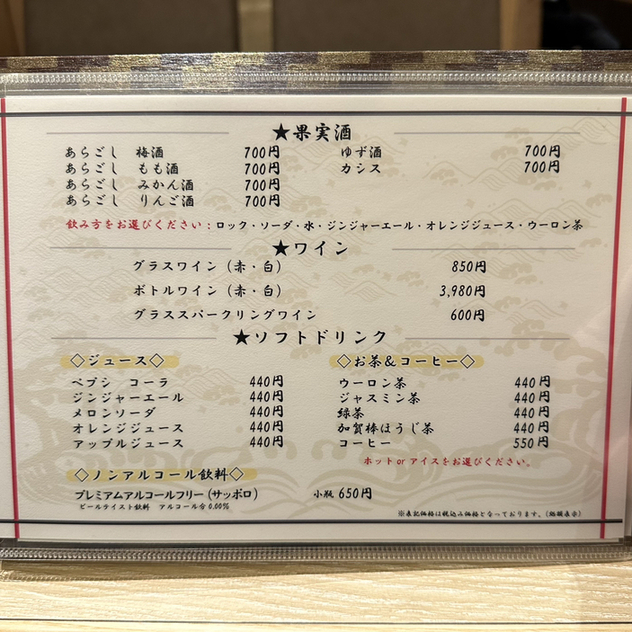 ★果実酒
あらごし 梅酒 700円 ゆず酒 700円
あらごし もも酒 700円 カシス 700円
あらごし みかん酒 700円
あらごし りんご酒 700円
飲み方をお選びください：ロック・ソーダ・水・ジンジャーエール・オレンジジュース・ウーロン茶
★ワイン
グラスワイン（赤・白） 850円
ボトルワイン（赤・白） 3,980円
グラススパークリングワイン 600円
★ソフトドリンク
◇ジュース◇ ◇お茶＆コーヒー◇
ペプシ コーラ 440円 ウーロン茶 440円
ジンジャーエール 440円 ジャスミン茶 440円
メロンソーダ 440円 緑茶 440円
オレンジジュース 440円 加賀棒ほうじ茶 440円
アップルジュース 440円 コーヒー 550円
ホット or アイスをお選びください。
◇ノンアルコール飲料◇
プレミアムアルコールフリー（サッポロ） 小瓶 650円
ビールテイスト飲料 アルコール分 0.00%
※表記価格は税込み価格となっております。（総額表示）